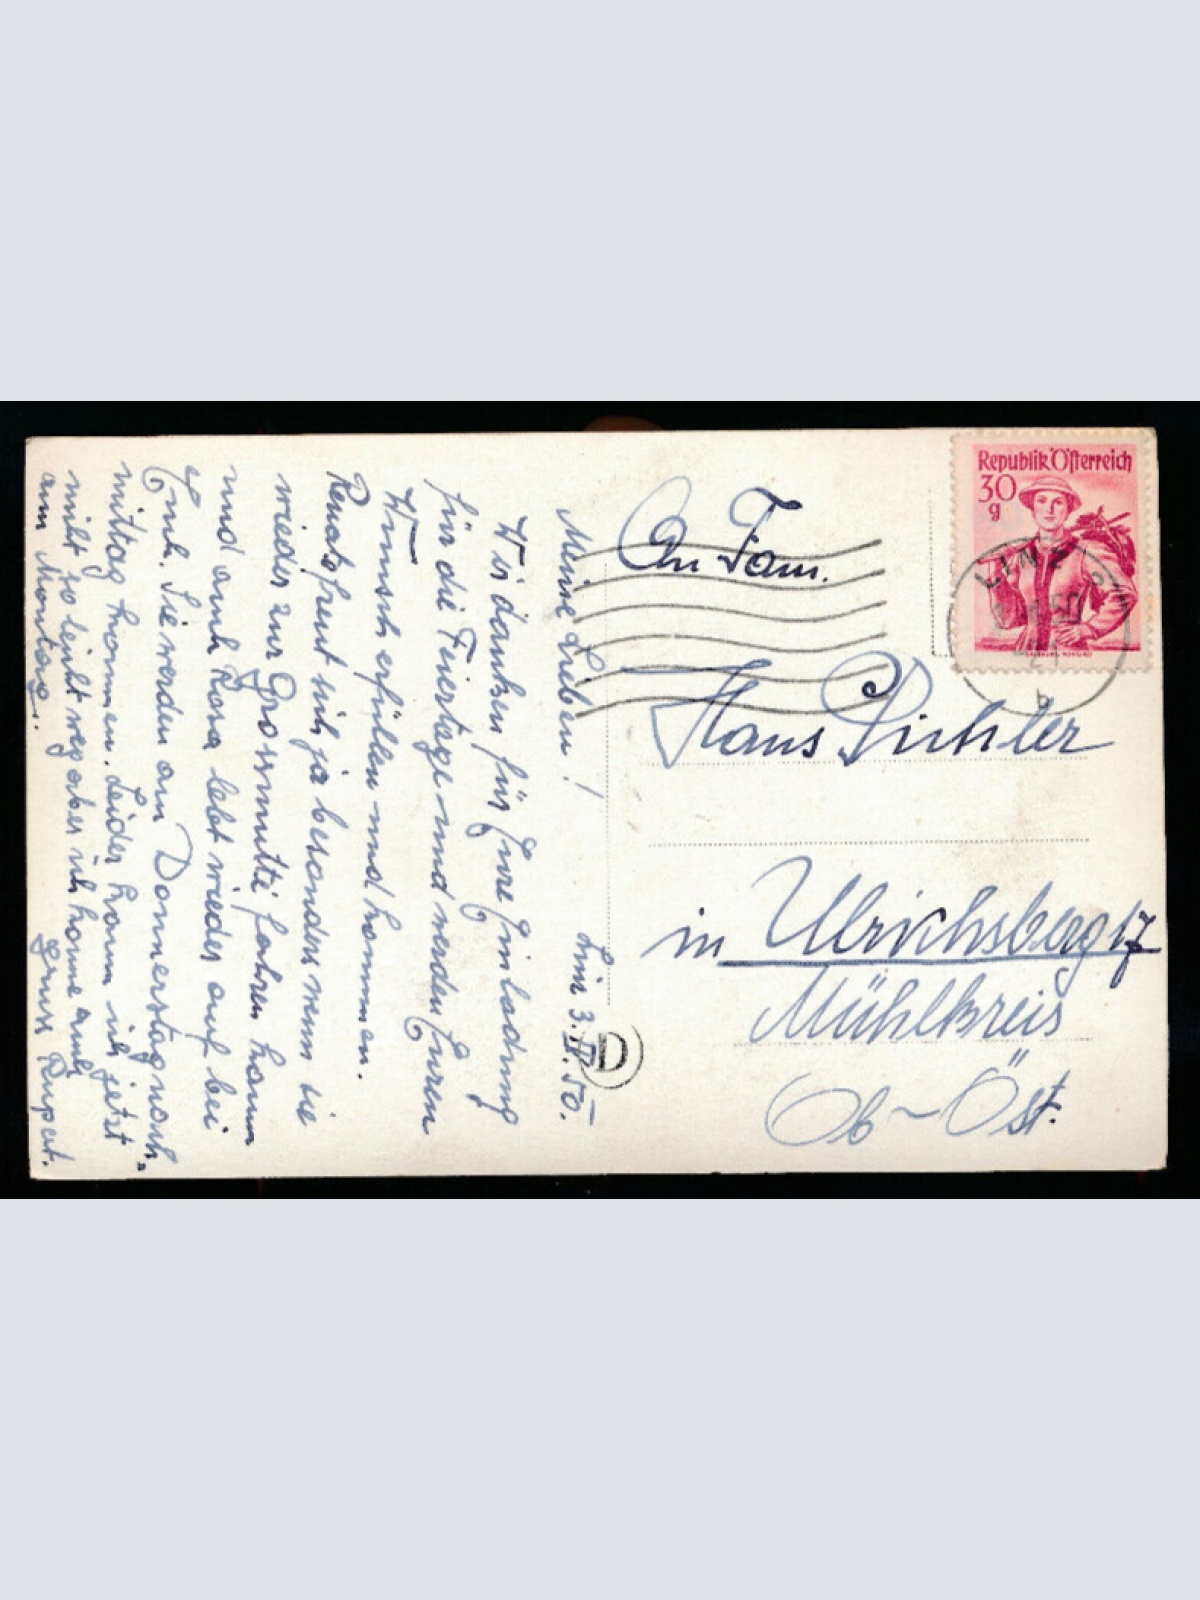 Linz 3.IV.50.
Meine Lieben!
Wir danken für Eure Einladung
für die Feiertage und werden Euren
Wunsch erfüllen und kommen.
Renate freut sich ja besonders wenn sie
wieder zur Grossmutti fahren kann
und auch Rosa lebt wieder auf bei
Euch. Sie werden am Donnerstag nach-
mittag kommen. Leider kann ich jetzt
nicht so leicht weg aber ich komme auch
am Montag.
Gruss Rupert.
An Fam.
Hans Pichler
in Ulrichsberg 17
Mühlkreis
Ob-Öst.
Republik Österreich
30
g
LINZ
50
b
D